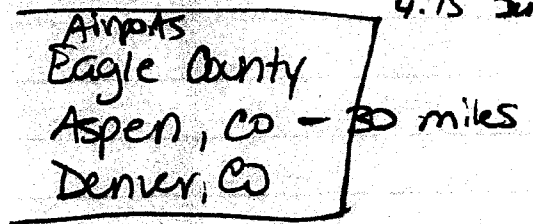 4.75
Airports
Eagle County
Aspen, CO - 30 miles
Denver, CO